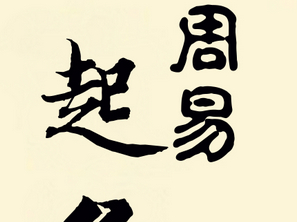 周易
起